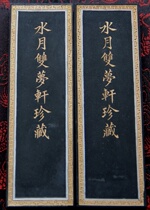 水月雙夢軒珍藏
水月雙夢軒珍藏